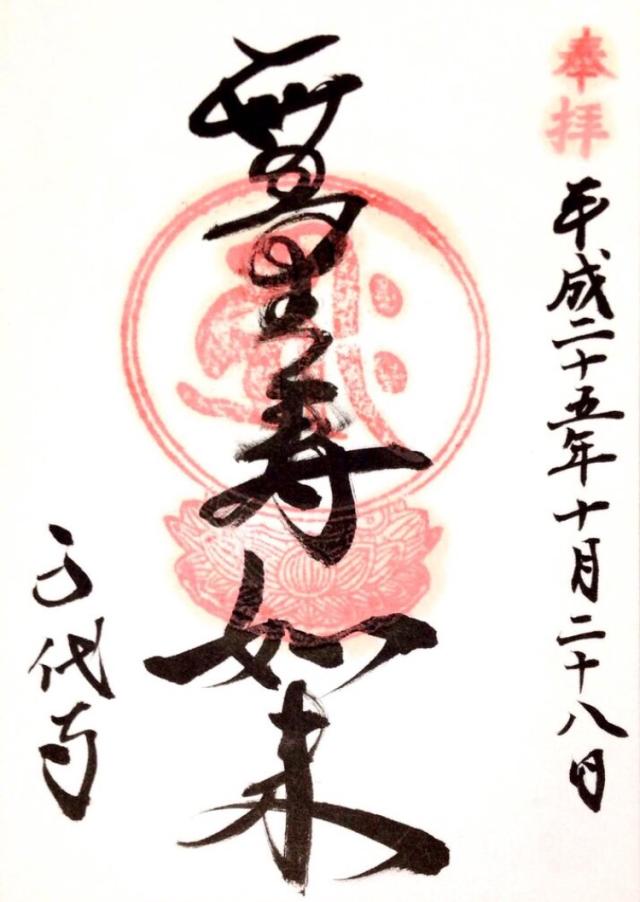 奉拝
平成二十五年十月二十八日
無量寿如来